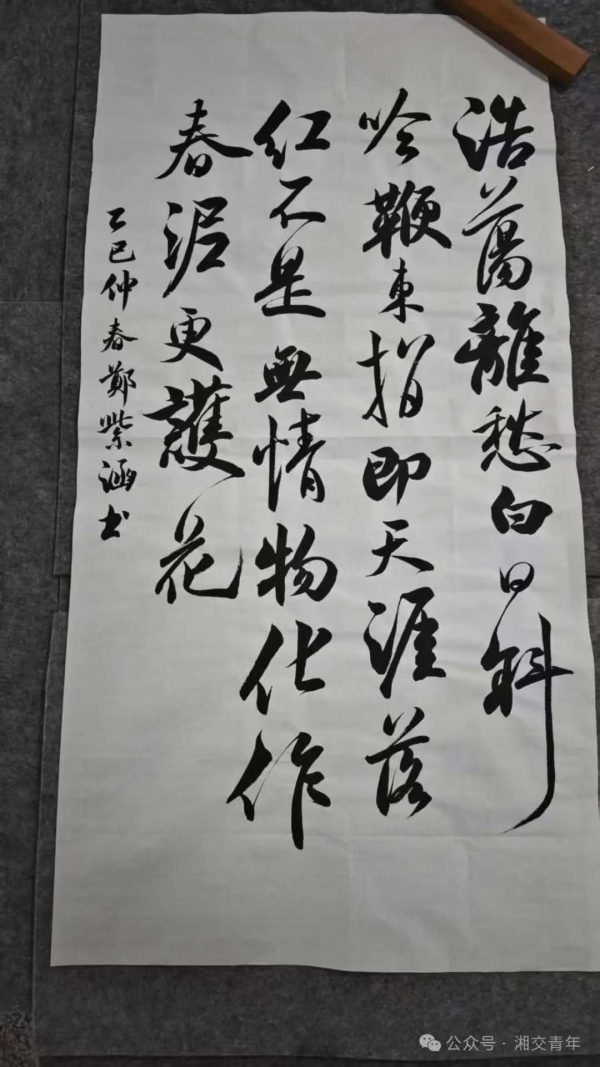 浩蕩離愁白日斜
吟鞭東指即天涯落
紅不是無情物化作
春泥更護花
乙巳仲春鄭紫涵书
公众号·湘交青年